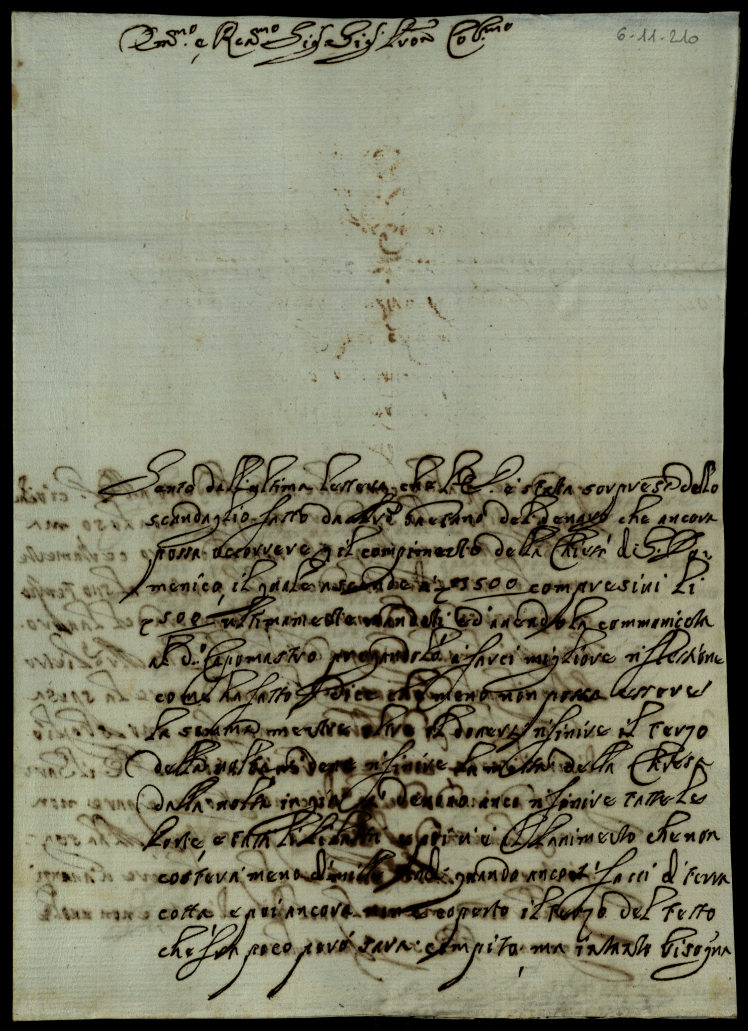 Em.mo e Reu.mo Sig.e Sig. Pron Col.mo
6-11-210
Sento dall'ultima lettera che l'E. è statta sorpresa dello
scandaglio fatto dal Gaetano del denaro che ancora
possa occorrere p il compimento della Chiesa di S. Do:
menico, il quale ascende a 1500 compresiui li
500 ultimamente mandati ed auendola communicata
al d.o Capomastro pregandolo a farci migliore riflessione
come ha fatto dice che meno non possa essere
la somma mentre oltre il douersi rifinire il terzo
della deue rifinire la metà della Chiesa
dalla uolta in giù deuono anco rifinire tutte le
Porte, e tutti e poi ui è il che non
costera meno di mille quando ancor si facci di terra
cotta e poi ancora non è coperto il terzo del tetto
che frà poco però sarà compito, ma intanto bisogna